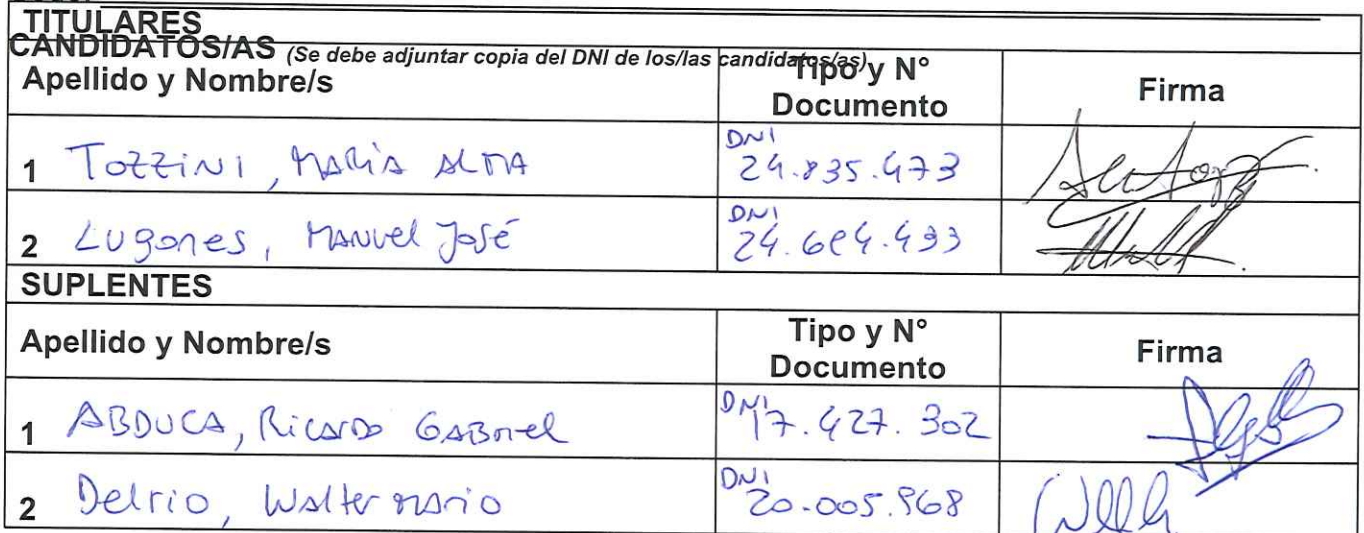 TITULARES
CANDIDATOS/AS (Se debe adjuntar copia del DNI de los/las candidatos/as)
Apellido y Nombre/s Tipo y N° Documento Firma
1 TOZZINI, MARÍA ALMA DNI 24.835.473
2 Lugones, Manuel José DNI
SUPLENTES
Apellido y Nombre/s Tipo y N° Documento Firma
1 ABDUCA, Ricardo Gabriel DNI 17.427.302
2 Delrio, Walter Mario DNI 20.005.968